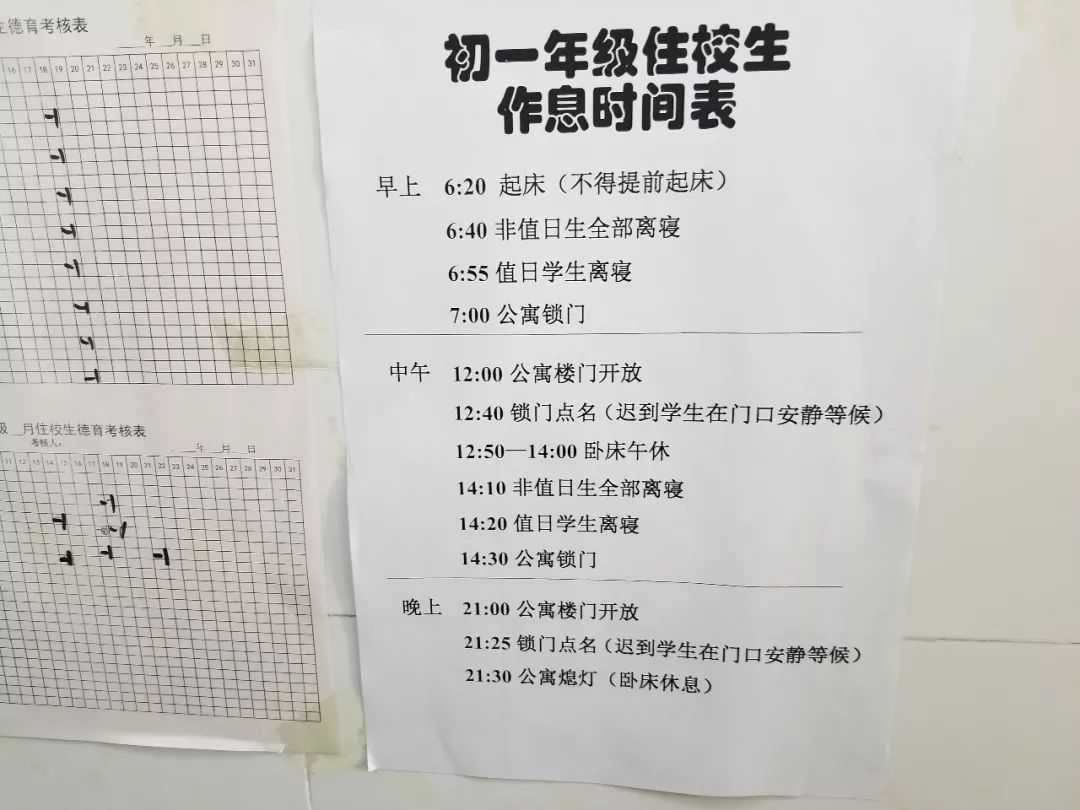 生德育考核表
年 月 日
16 17 18 19 20 21 22 23 24 25 26 27 28 29 30 31
级__月住校生德育考核表
考核人:
年 月 日
11 12 13 14 15 16 17 18 19 20 21 22 23 24 25 26 27 28 29 30 31
初一年级住校生
作息时间表
早上 6:20 起床（不得提前起床）
6:40 非值日生全部离寝
6:55 值日学生离寝
7:00 公寓锁门
中午 12:00 公寓楼门开放
12:40 锁门点名（迟到学生在门口安静等候）
12:50—14:00 卧床午休
14:10 非值日生全部离寝
14:20 值日学生离寝
14:30 公寓锁门
晚上 21:00 公寓楼门开放
21:25 锁门点名（迟到学生在门口安静等候）
21:30 公寓熄灯（卧床休息）